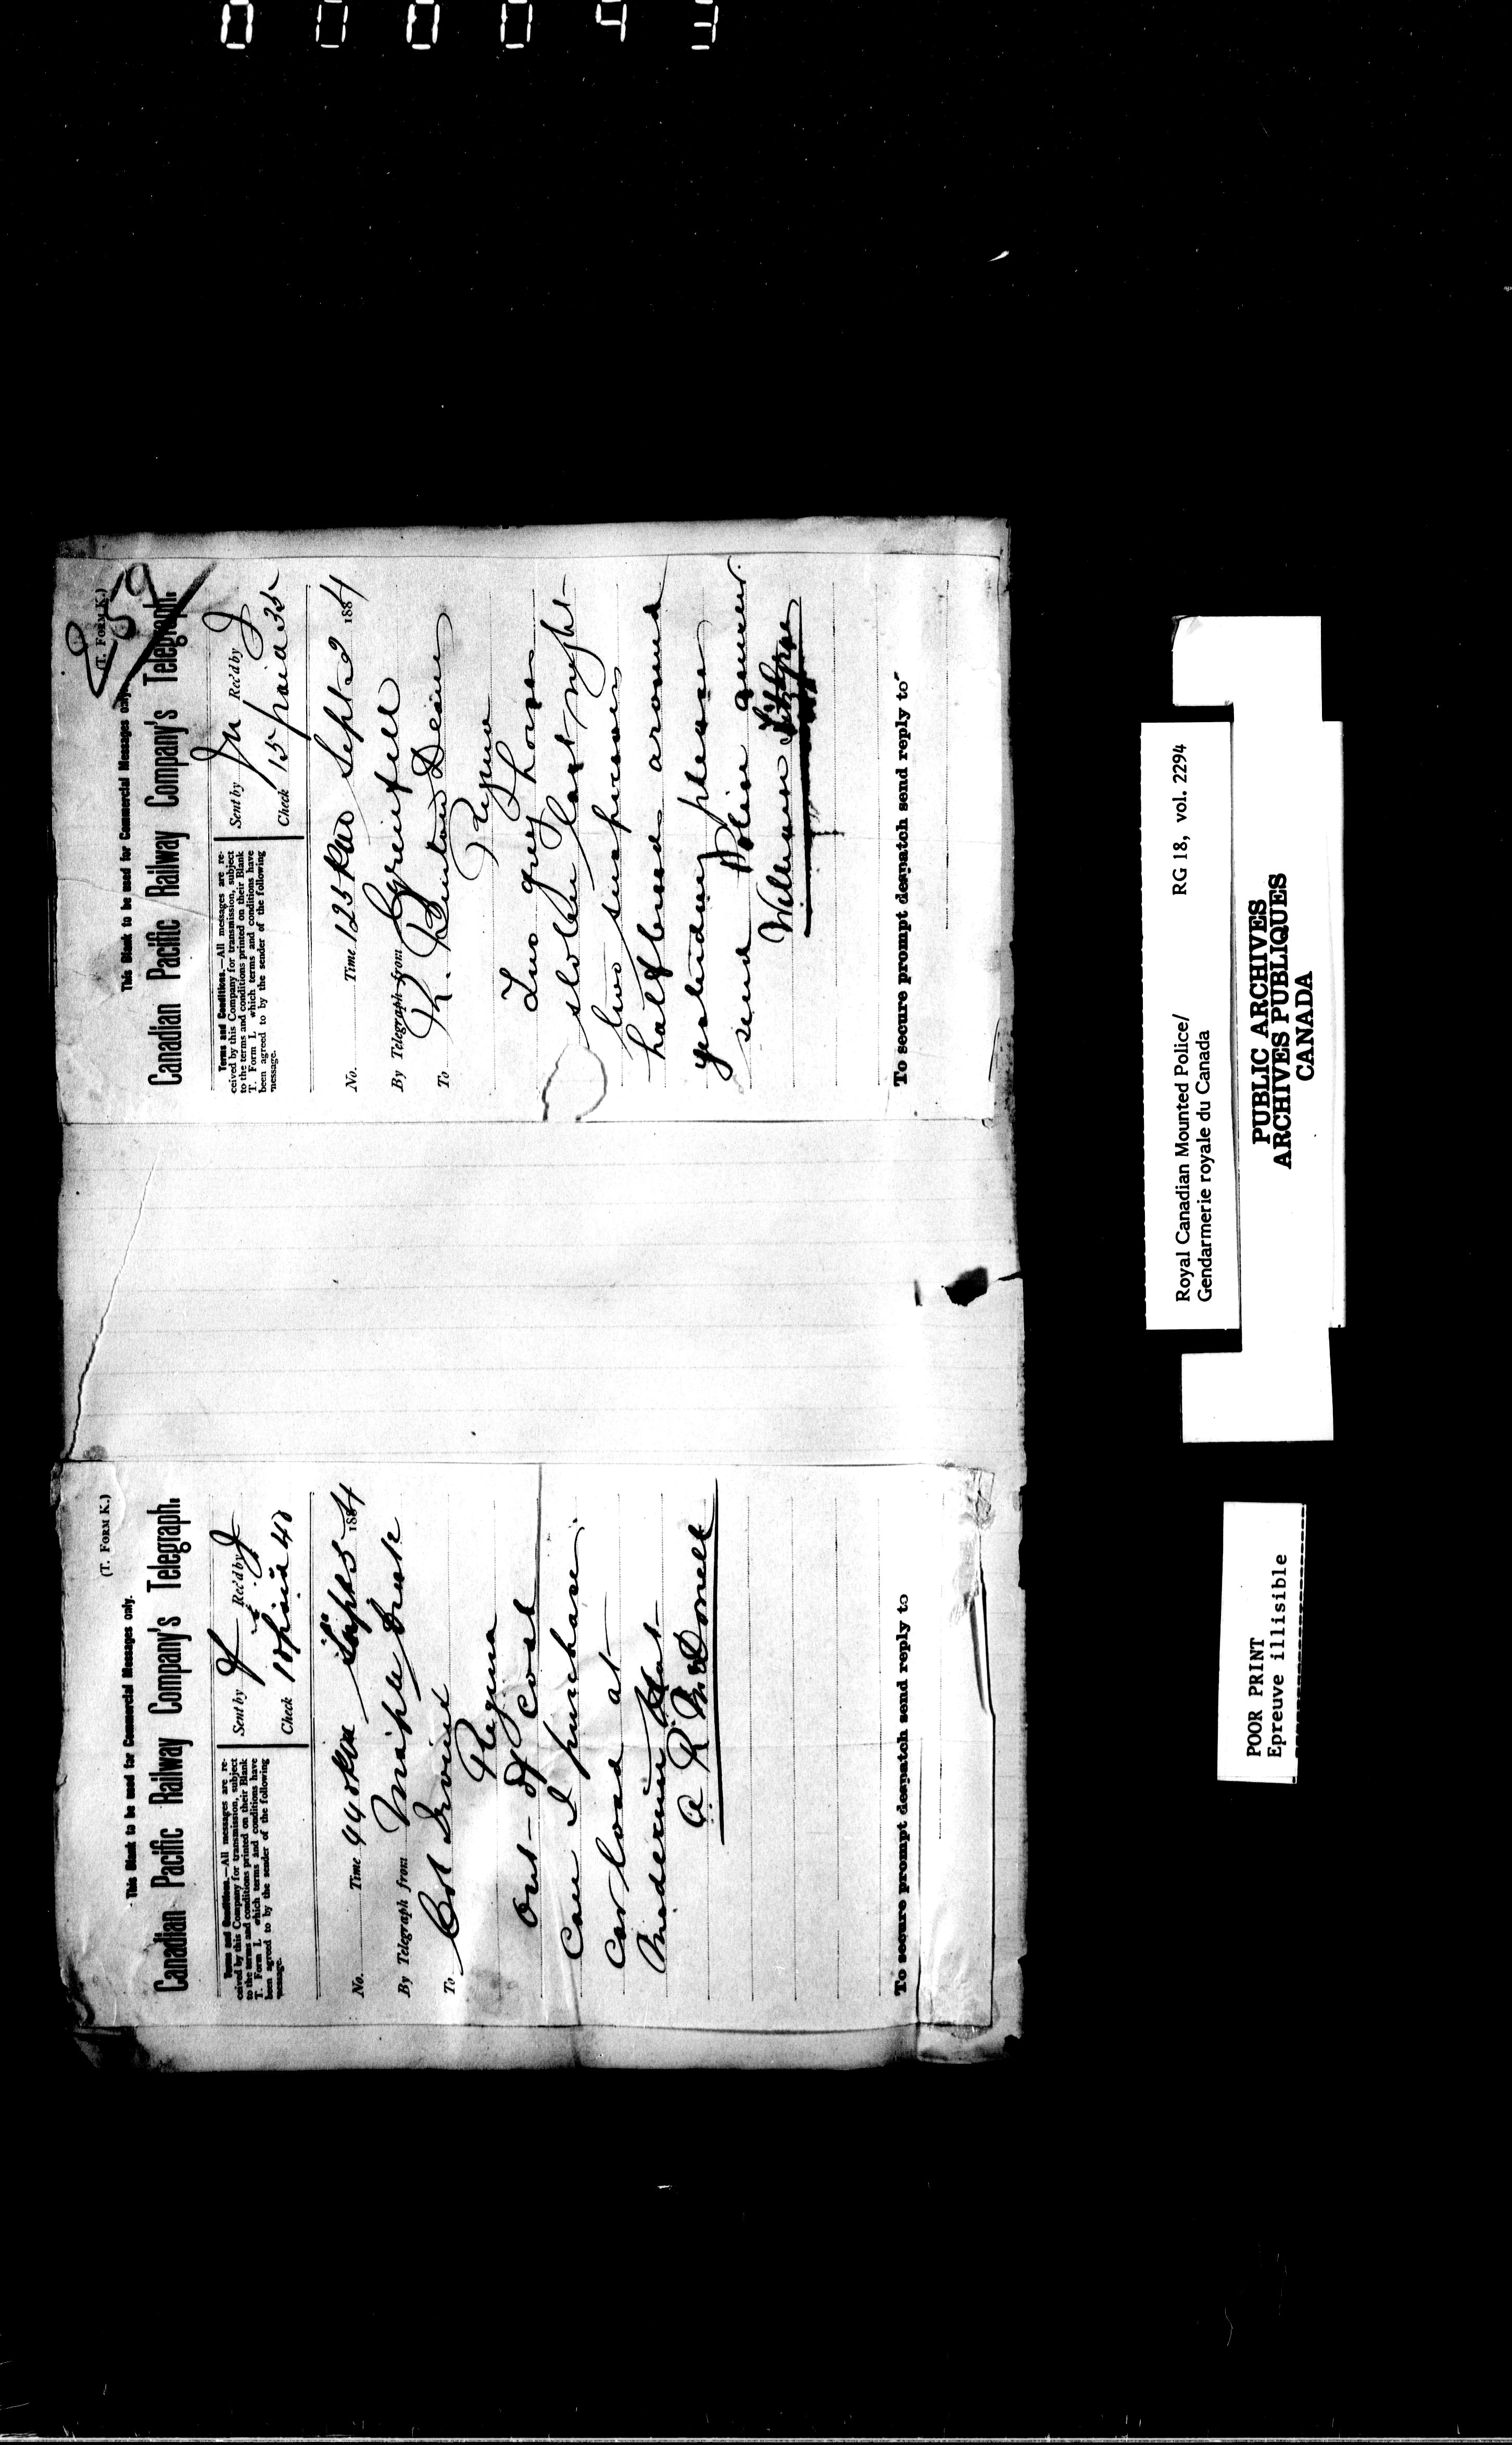 (T. FORM K.)
This Blank to be used for Commercial Messages only.
Canadian Pacific Railway Company's Telegraph.
Terms and Conditions.—All messages are re-
ceived by this Company for transmission, subject
to the terms and conditions printed on their Blank
T. Form 1. which terms and conditions have
been agreed to by the sender of the following
message.
Sent by Rec'd by J
Check 10 paid 40
No. Time Sept 5 1884
By Telegraph from Maple Creek
To Col Irvine
Regina
Out of Coal
Can I purchase
Car load at
Medecine Hat
A R McDonell
To secure prompt despatch send reply to
59
(T. FORM K.)
This Blank to be used for Commercial Messages only.
Canadian Pacific Railway Company's Telegraph.
Terms and Conditions.—All messages are re-
ceived by this Company for transmission, subject
to the terms and conditions printed on their Blank
T. Form 1. which terms and conditions have
been agreed to by the sender of the following
message.
Sent by Rec'd by J
Check 15 paid 35
No. Time 125 Sept 2 1884
By Telegraph from Grenfell
To R. Burton Deane
Regina
Two grey horses
stolen last night
two suspicious
halfbreeds around
yesterday please
send Police
William
To secure prompt despatch send reply to
Royal Canadian Mounted Police/ RG 18, vol. 2294
Gendarmerie royale du Canada
PUBLIC ARCHIVES
ARCHIVES PUBLIQUES
CANADA
POOR PRINT
Epreuve illisible